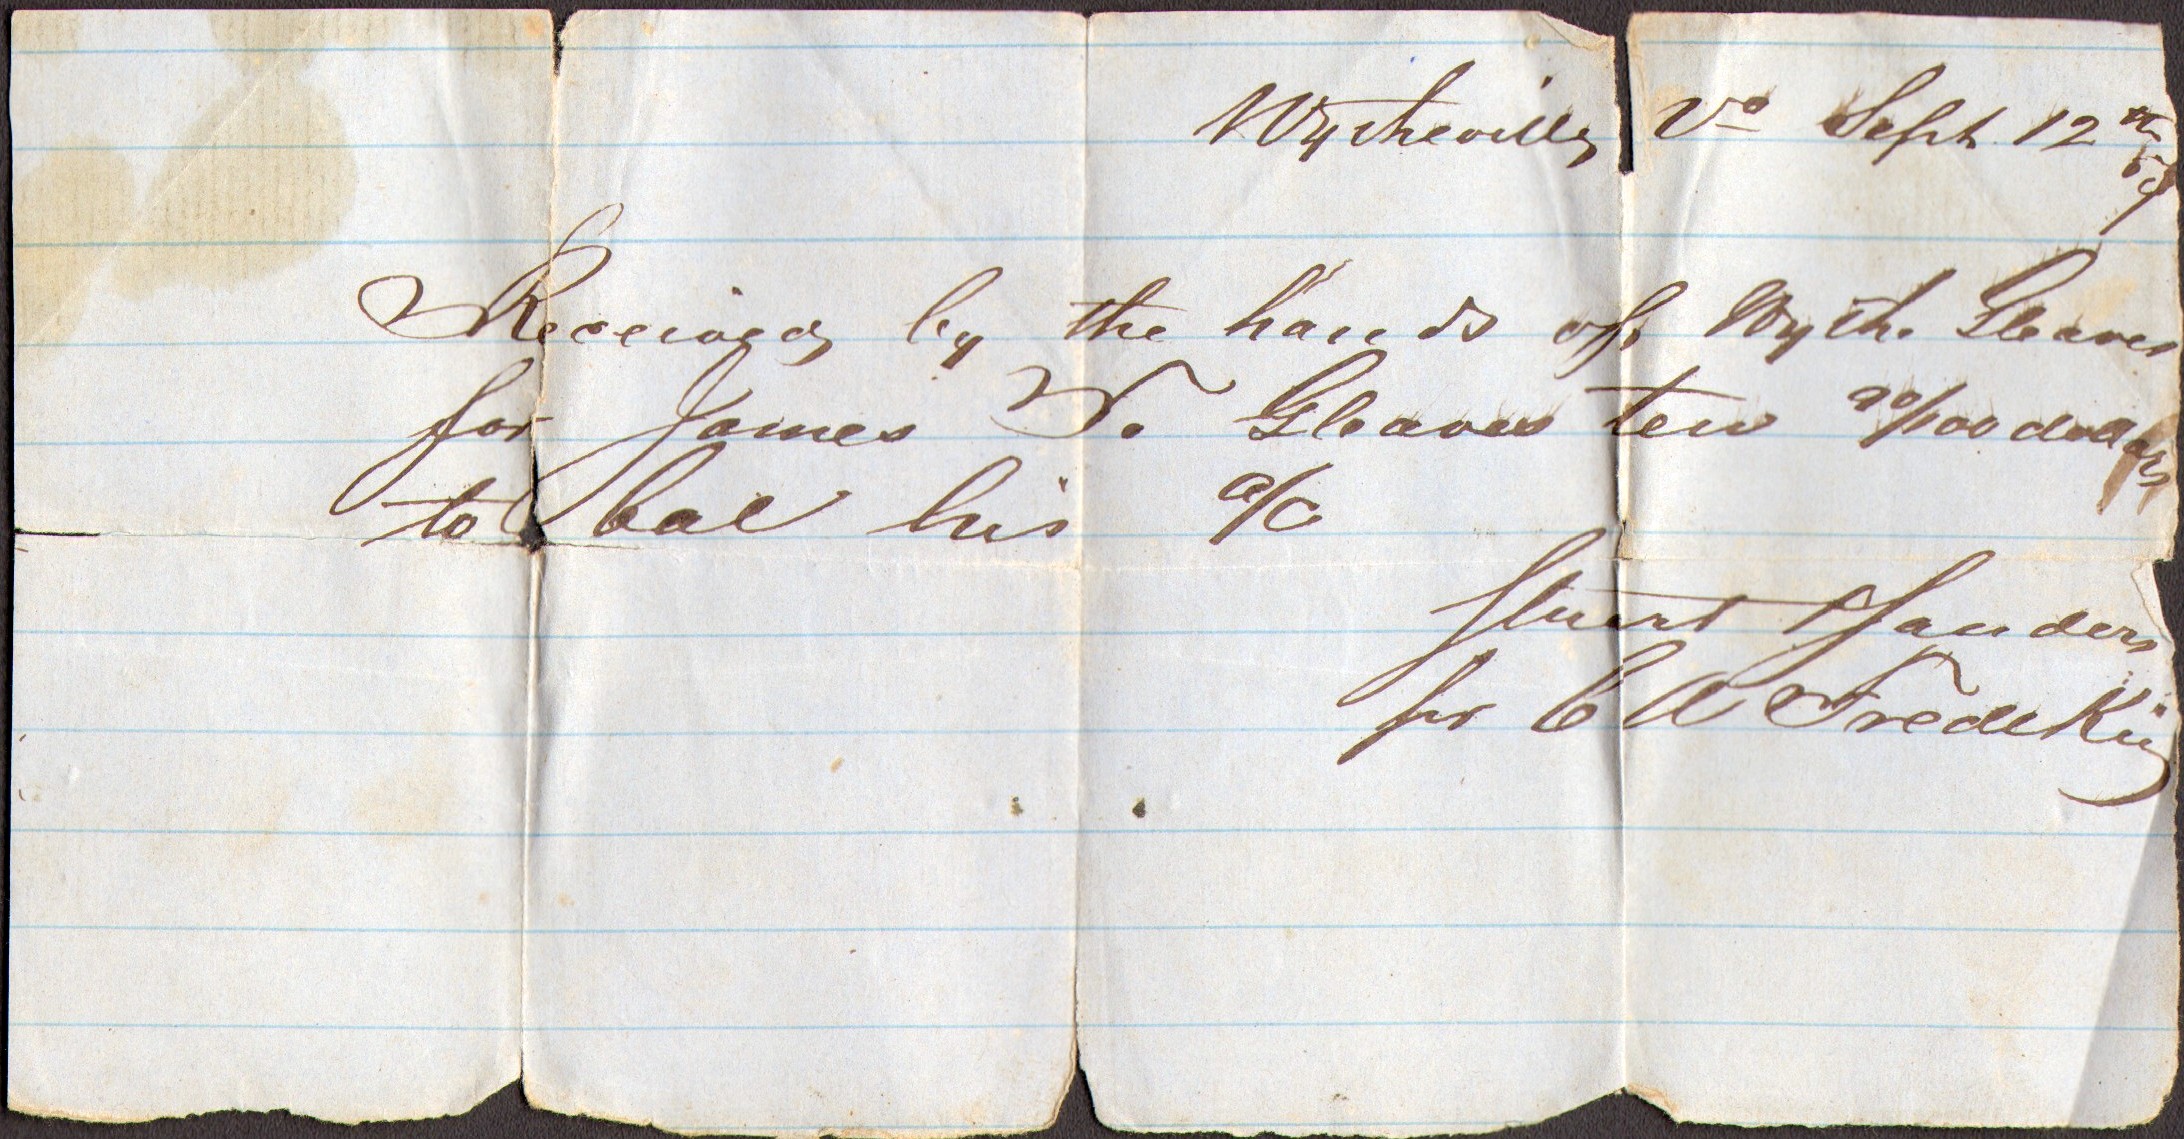 Wytheville Va Sept 12th 59
Received by the hands of Wyth. Gleaves
for James T. Gleaves ten 90/100 dollars
to bal his a/c
Stuart & Sanders
pr C A Fredeking